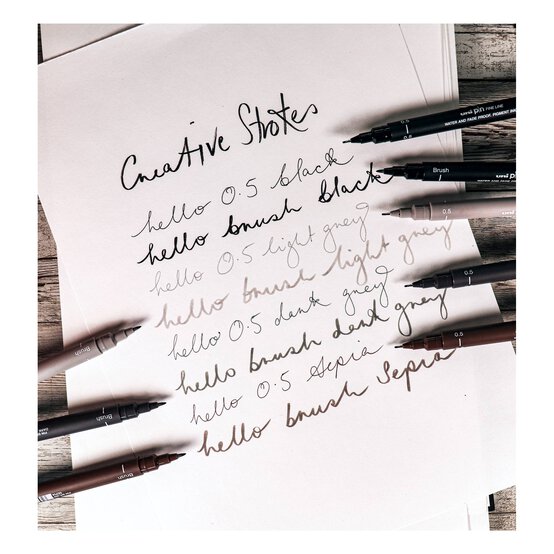 Creative Strokes
hello 0.5 black
hello brush black
hello 0.5 light grey
hello brush light grey
hello 0.5 dark grey
hello brush dark grey
hello 0.5 Sepia
hello brush Sepia
0.5
uni pin FINE LINE
WATER AND FADE PROOF, PIGMENT INK
Brush
uni pin
0.5
uni
0.5
0.5
Brush
Brush
Brush